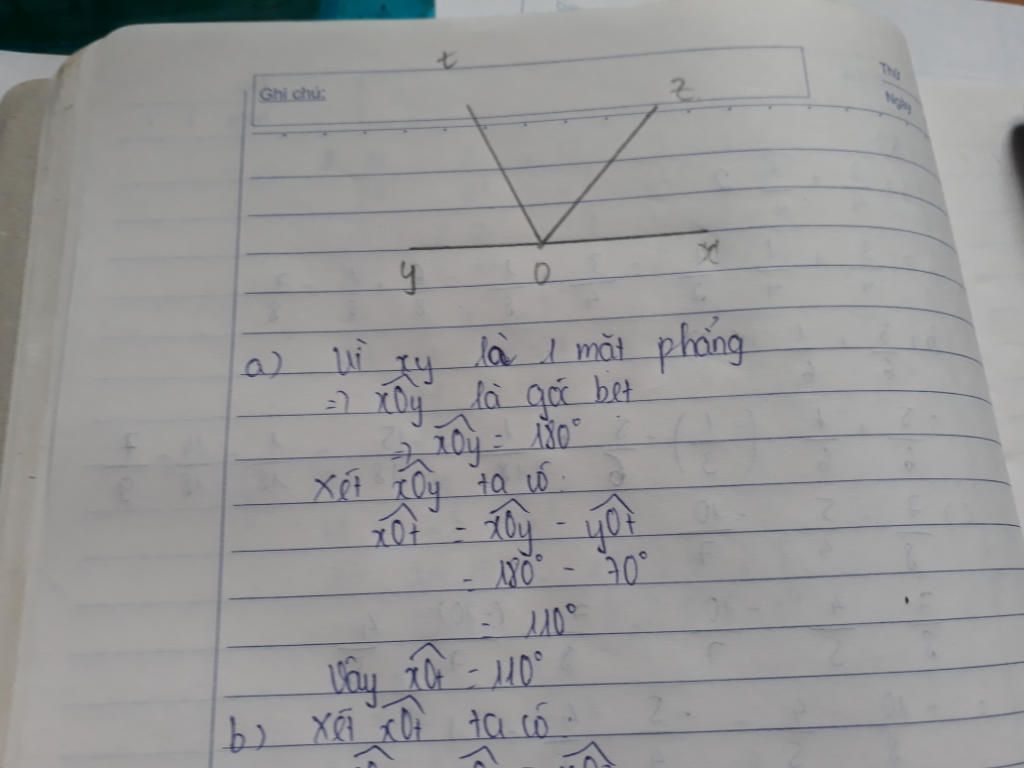 t
z
Ghi chú:
Thứ
Ngày
y O x
a) Vì xy là 1 mặt phẳng
=> xOy là góc bẹt
=> xOy = 180°
Xét xOy ta có:
xOt = xOy - yOt
= 180° - 70°
= 110°
Vậy xOt = 110°
b) Xét xOt ta có: